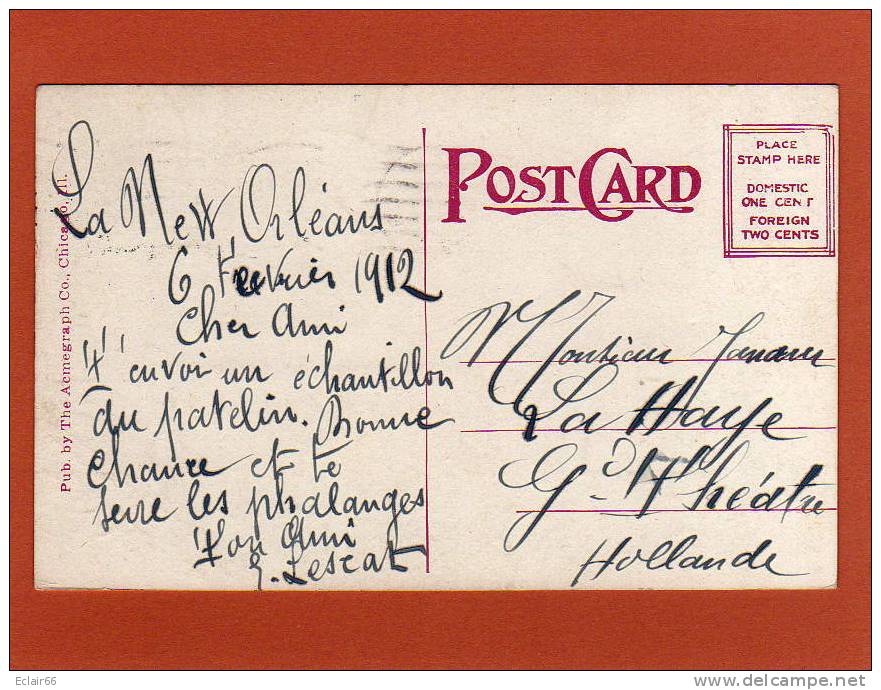 La New Orléans
6 Fevrier 1912
Cher Ami
T'envoi un échantillon
du patelin. Bonne
chance et te
serre les phalanges
Ton Ami
Pub. by The Acmegraph Co., Chicago, Ill.
POST CARD
PLACE
STAMP HERE
DOMESTIC
ONE CENT
FOREIGN
TWO CENTS
Monsieur
La Haye
Gd Théâtre
Hollande
Eclair66
www.delcampe.net